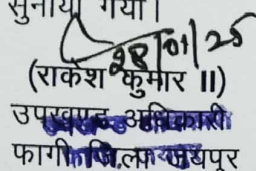 सुनाया गया।
28/01/25
(राकेश कुमार II)
उपखण्ड अधिकारी
फागी जिला जयपुर